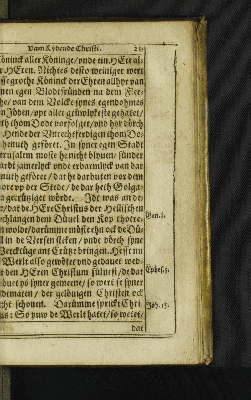 Vam Lydende Christi.
Köninck aller Köninge/vnde ein HEre al-
ler HEren. Nichtes desto weiniger wert
disse grothe Köninck der Ehren allhyr van
synen egen Blodtfründen na dem Fles-
che/vnd van dem Volcke synes egendohmes
den Jöden/vpt aller grüwlykeste gehatet/
beth thom Dode vorfolget/vnd hyr dörch
Hende der Vnrechtferdigen thom Do-
de henuth geföret. In syner egen Stadt
Jerusalem moste he nicht blyuen/sünder
wardt jamerlyck vnde erbarmlick van dar
henuth geföret/dat he dar buten vor dem
Dore vp der Stede/de dar heth Golga-
tha gecrütziget würde. Jdt was an de-
me/dat de HEre Christus der Hellischen
Schlangen dem Düuel den Kop thotre-
den wolde/darümme müste ehn ock de Dü-
uel in de Versen steken/vnde dörch syne
Wercktüge ans Crütze bringen. Hefft nu
de Werlt also gewötet vnd gedauet wed-
der den HEren Christum süluest/de dat
Höuet ys syner gemeine/so wert se syner
Ledematen/der gelöuigen Christen ock
nicht schonen. Darümme spricht Chri-
stus: So yuw de Werlt hatet/so wetet/
dat
Gen.3.
Ephes.5.
Joh.15.